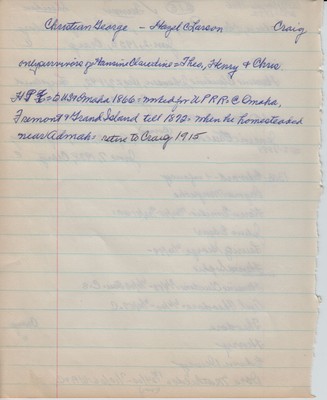 Christian George - Hazel C Larson Craig
only survivors of Hannis Claudine = Theo, Henry & Chris
to Omaha 1866 = worked for U P R R = @ Omaha,
Fremont & Grand Island till 1872 = when he homesteaded
near Admah = retire to Craig 1915